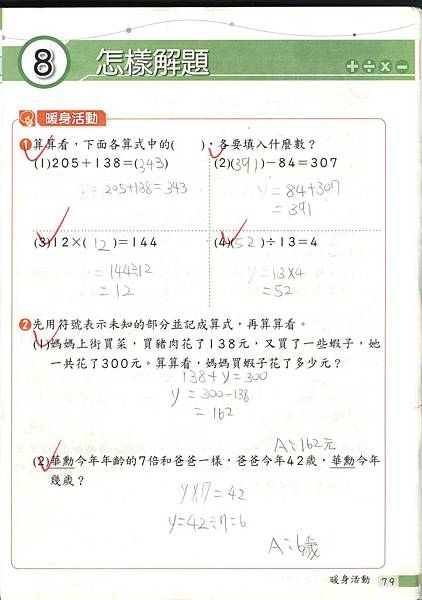 8 怎樣解題 +÷×−
暖身活動
1 算算看，下面各算式中的( )，各要填入什麼數？
(1)205+138=(343) (2)(391)−84=307
=205+138=343 y=84+307
=391
(3)12×(12)=144 (4)(52)÷13=4
=144÷12 y=13×4
=12 =52
2 先用符號表示未知的部分並記成算式，再算算看。
(1)媽媽上街買菜，買豬肉花了138元，又買了一些蝦子，她
一共花了300元。算算看，媽媽買蝦子花了多少元？
138+y=300
y=300-138
=162
A:162元
(2)華勳今年年齡的7倍和爸爸一樣，爸爸今年42歲，華勳今年
幾歲？
y×7=42
y=42÷7=6
A:6歲
暖身活動 79